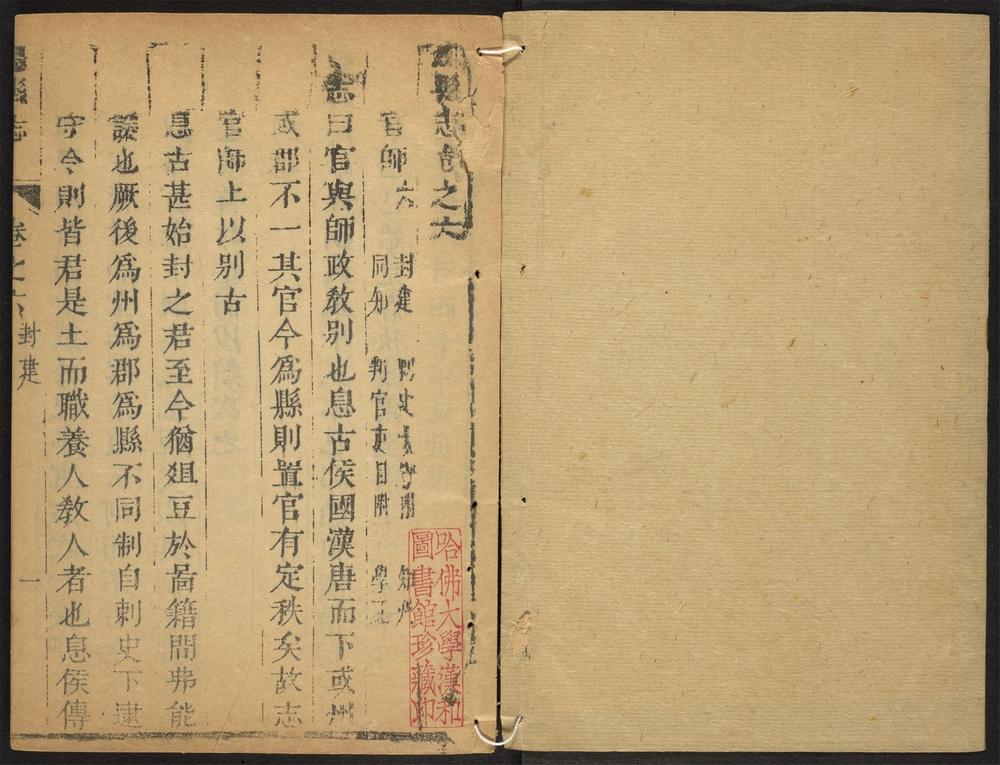 息縣志卷之六
官師六 封建 刺史 太守附 知州
同知 判官 吏目附 學正
志曰官與師政教別也息古侯國漢唐而下或州
或郡不一其官今爲縣則置官有定秩矣故志
官師上以別古
息古甚始封之君至今猶俎豆於啚籍間弗能
諼也厥後爲州爲郡爲縣不同制自刺史下逮
守令則皆君是土而職養人教人者也息侯傳
息縣志 卷之六 封建 一
哈佛大學漢和
圖書館珍藏印